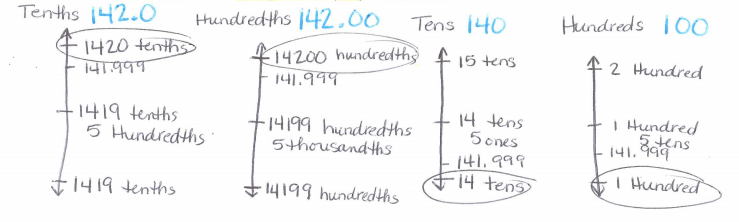 Tenths 142.0
1420 tenths
141.999
1419 tenths
5 Hundredths
1419 tenths
Hundredths 142.00
14200 hundredths
141.999
14199 hundredths
5 thousandths
14199 hundredths
Tens 140
15 tens
14 tens
5 ones
141.999
14 tens
Hundreds 100
2 Hundred
1 Hundred
5 tens
141.999
1 Hundred